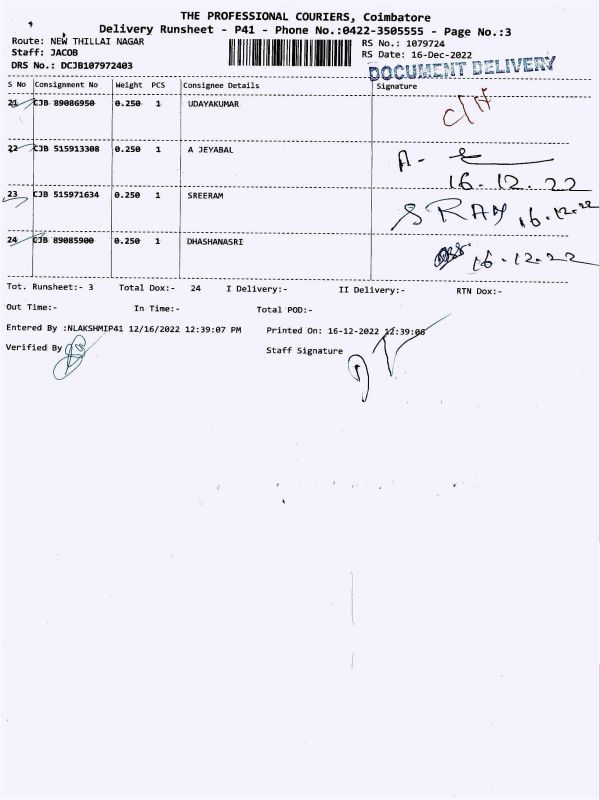 THE PROFESSIONAL COURIERS, Coimbatore
Delivery Runsheet - P41 - Phone No.:0422-3505555 - Page No.:3
Route: NEW THILLAI NAGAR
RS No.: 1079724
Staff: JACOB
RS Date: 16-Dec-2022
DRS No.: DCJB107972403
DOCUMENT DELIVERY
S No Consignment No Weight PCS Consignee Details Signature
21 CJB 89086950 0.250 1 UDAYAKUMAR
22 CJB 515913308 0.250 1 A JEYABAL A-
16.12.22
23 CJB 515971634 0.250 1 SREERAM SRAM 16.12.22
24 CJB 89085900 0.250 1 DHASHANASRI 16.12.22
Tot. Runsheet:- 3 Total Dox:- 24 I Delivery:- II Delivery:- RTN Dox:-
Out Time:- In Time:- Total POD:-
Entered By :NLAKSHMIP41 12/16/2022 12:39:07 PM Printed On: 16-12-2022 12:39:06
Verified By Staff Signature